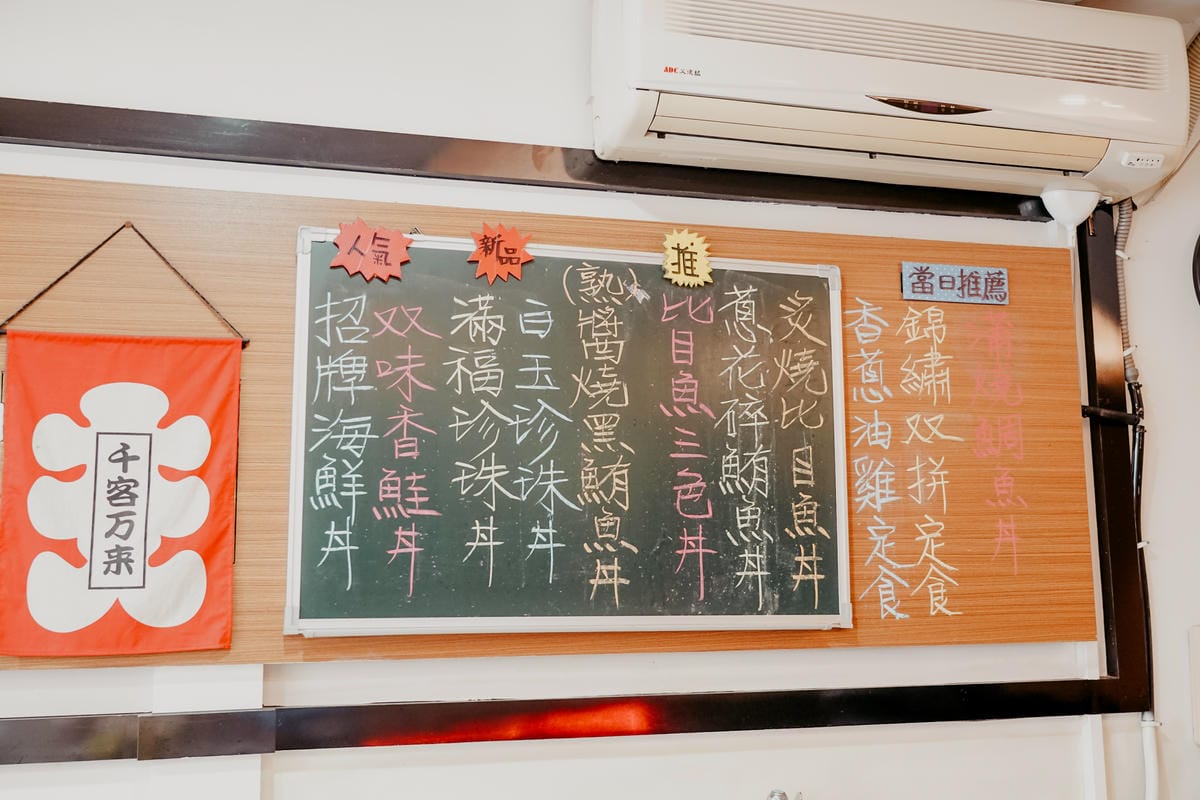 ADC
當日推薦
蒲燒鯛魚丼
錦繡双拼定食
香蔥油雞定食
炙燒比目魚丼
蔥花碎鮪魚丼
推
比目魚三色丼
(熟)醬燒黑鮪魚丼
白玉珍珠丼
新品
滿福珍珠丼
双味香鮭丼
人氣
招牌海鮮丼
千客万来